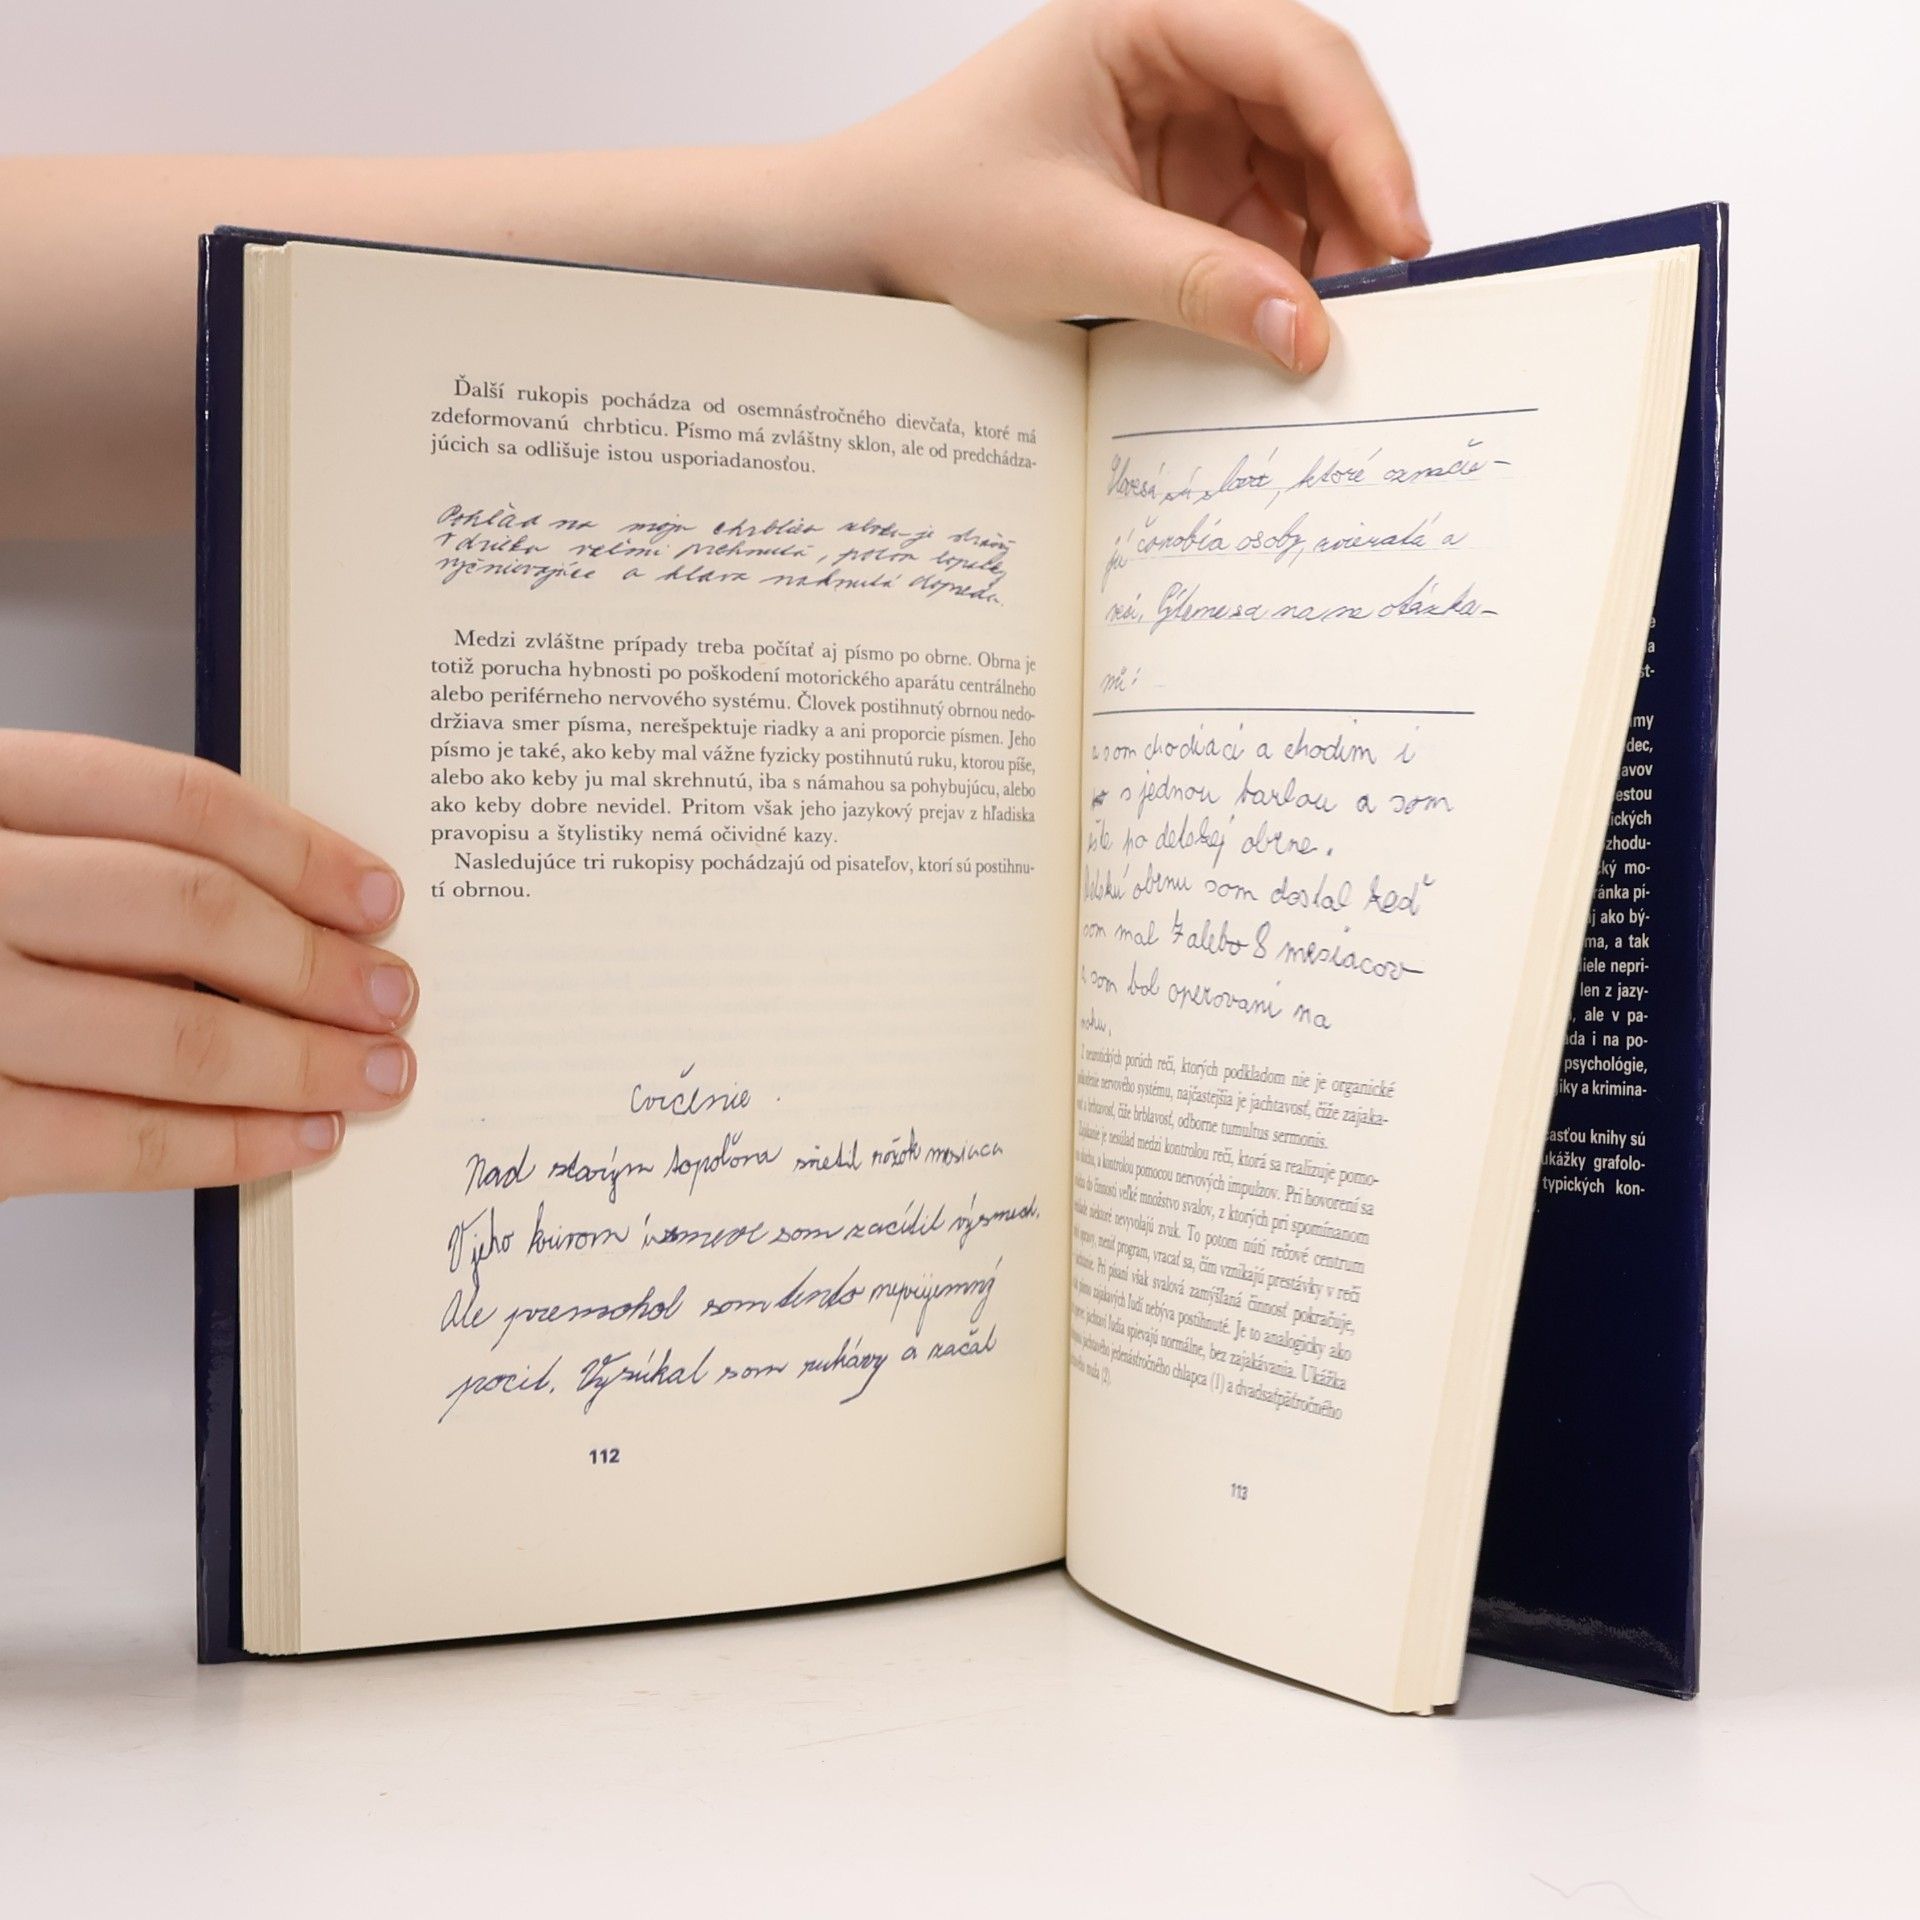 Ďalší rukopis pochádza od osemnásťročného dievčaťa, ktoré má
zdeformovanú chrbticu. Písmo má zvláštny sklon, ale od predchádza-
júcich sa odlišuje istou usporiadanosťou.
Pohľad na moju chrbticu je
veľmi prehnutá, potom
vyčnievajúce a hlava nahnutá dopredu.
Medzi zvláštne prípady treba počítať aj písmo po obrne. Obrna je
totiž porucha hybnosti po poškodení motorického aparátu centrálneho
alebo periférneho nervového systému. Človek postihnutý obrnou nedo-
držiava smer písma, nerešpektuje riadky a ani proporcie písmen. Jeho
písmo je také, ako keby mal vážne fyzicky postihnutú ruku, ktorou píše,
alebo ako keby ju mal skrehnutú, iba s námahou sa pohybujúcu, alebo
ako keby dobre nevidel. Pritom však jeho jazykový prejav z hľadiska
pravopisu a štylistiky nemá očividné kazy.
Nasledujúce tri rukopisy pochádzajú od pisateľov, ktorí sú postihnu-
tí obrnou.
Cvičenie.
Nad starým topoľom svietil rôžok mesiaca
V jeho krivom úsmeve som zacítil výsmech.
Ale premohol som tento nepríjemný
pocit. Vysúkal som rukávy a začal
112
sú slová, ktoré označu-
jú osoby, zvieratá a
veci. Pýtame sa na ne otázka-
mi:
a som chodiaci a chodim i
s jednou barlou a som
po detskej obrne.
obrnu som dostal keď
som mal 7 alebo 8 mesiacov
a som bol operovani na
nohu,
Z neurotických porúch reči, ktorých podkladom nie je organické
poškodenie nervového systému, najčastejšia je jachtavosť, čiže zajaka-
vosť a brbtavosť, čiže brblavosť, odborne tumultus sermonis.
Zajakanie je nesúlad medzi kontrolou reči, ktorá sa realizuje pomo-
sluchu, a kontrolou pomocou nervových impulzov. Pri hovorení sa
do činnosti veľké množstvo svalov, z ktorých pri spomínanom
niektoré nevyvolajú zvuk. To potom núti rečové centrum
opravy, meniť program, vracať sa, čím vznikajú prestávky v reči
Pri písaní však svalová zamýšľaná činnosť pokračuje,
písmo zajakavých ľudí nebýva postihnuté. Je to analogicky ako
jachtaví ľudia spievajú normálne, bez zajakávania. Ukážka
jachtavého jedenásťročného chlapca (1) a dvadsaťpäťročného
muža (2).
113
st-
dec,
javov
estou
ických
zhodu-
ký mo-
ránka pí-
j ako bý-
ma, a tak
iele nepri-
len z jazy-
, ale v pa-
da i na po-
psychológie,
iky a krimina-
časťou knihy sú
ukážky grafolo-
typických kon-